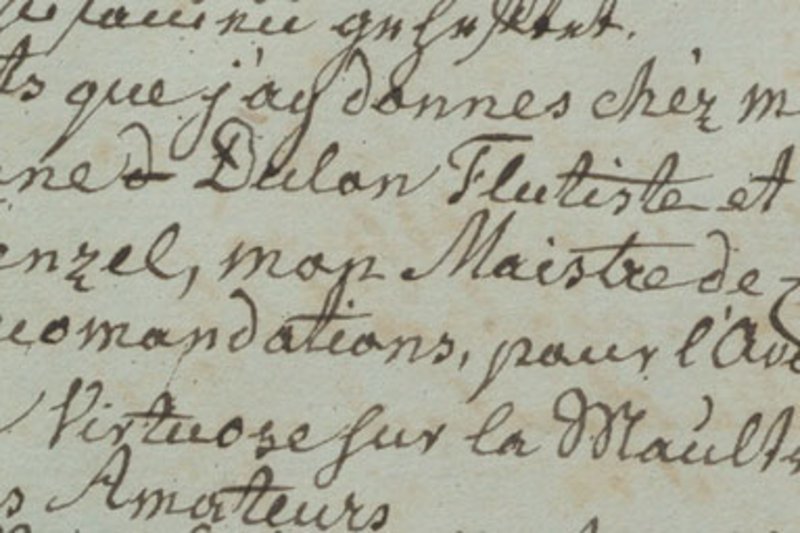 ts que j'ay donnes chéz m
ne d Dulon Flutiste et
enzel, mon Maistre de
comandations, pour l'Av
Virtuose sur la Mault
s Amateurs